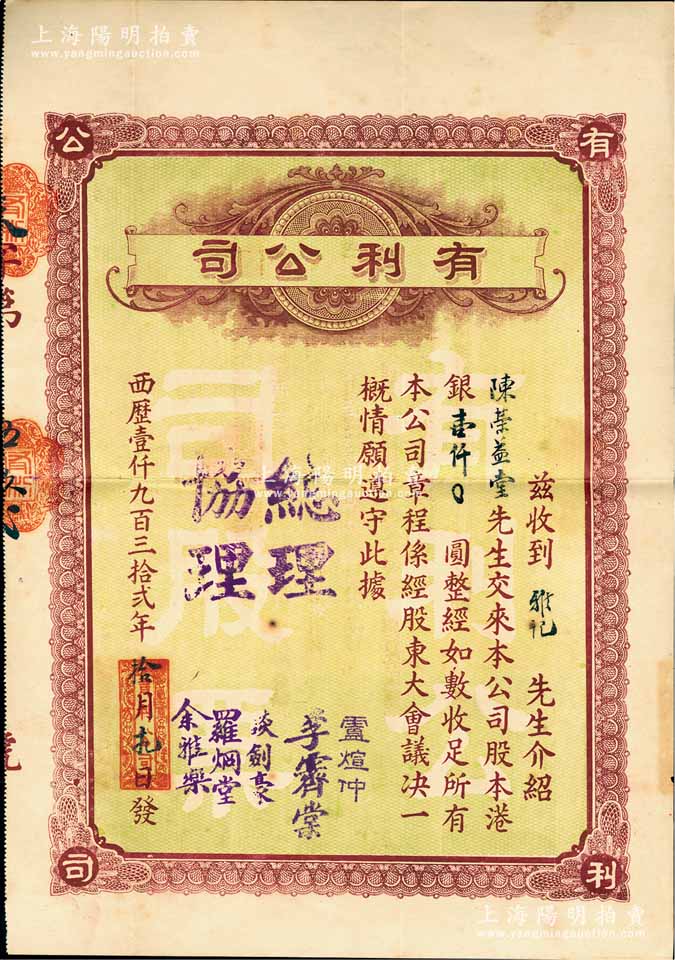 上海陽明拍賣
www.yangmingauction.com
有
利
公
司
有利公司
茲收到 雅記 先生介紹
陳榮益堂先生交來本公司股本港
銀壹仟0圓整經如數收足所有
本公司章程係經股東大會議决一
概情願遵守此據
總理
協理
盧煊仲
李霽棠
談劍豪
羅炳堂
余雅樂
西歷壹仟九百三拾弍年拾月九日發
有司公
司股票
字第
號
上海陽明拍賣
www.yangmingauction.com
上海陽明拍賣
www.yangmingauction.com